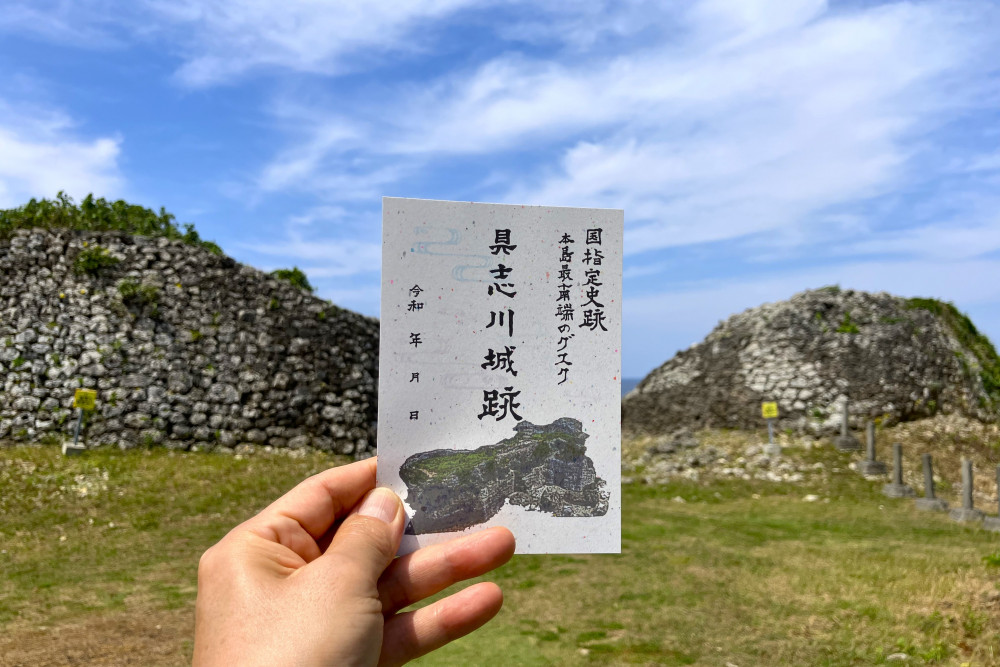 国指定史跡
本島最南端のグスク
具志川城跡
令和 年 月 日